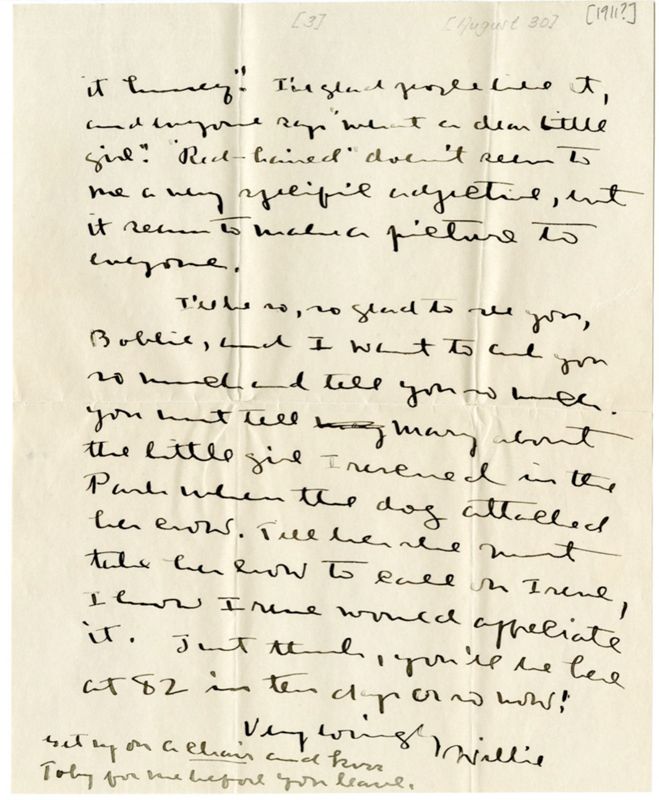 [3] [August 30] [1911?]
it himself". I'm glad people like it,
and everyone says "what a dear little
girl". "Red-haired" doesn't seem to
me a very specific adjective, but
it seems to make a picture to
everyone.
I'll be so, so glad to see you,
Bobbie, and I want to ask you
so much and tell you so much.
You must tell Mary about
the little girl I rescued in the
Park when the dog attacked
her crow. Tell her she must
take her crow to call on Irene,
I know Irene would appreciate
it. Just think, you'll be here
at 82 in ten days or so now!
Very lovingly, Willie
Get up on a chair and kiss
Toby for me before you leave.